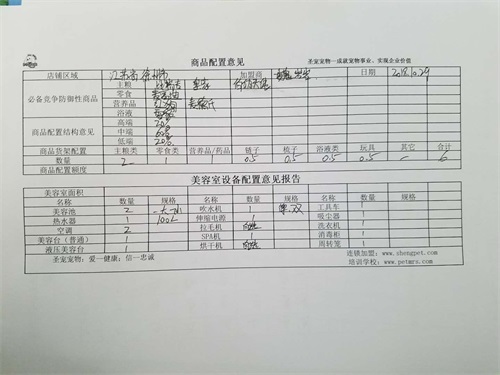 商品配置意见
圣宠宠物—成就宠物事业、实现企业价值
店铺区域 江苏省徐州市 加盟商 日期 2018.10.29
必备竞争防御性商品 主粮
零食
营养品
浴液
商品配置结构意见 高端 20%
中端 60%
低端 20%
商品货架配置 主粮类 零食类 营养品/药品 链子 梳子 浴液类 玩具 其它 合计
数量 2 1 1 0.5 0.5 0.5 0.5 — 6
商品配置额度
美容室设备配置意见报告
美容室面积
名称 数量 规格 名称 数量 规格 名称 数量 规格
美容池 2 一大一小 吹水机 1 单双 工具车 1
热水器 1 100L 伸缩电源 1 吸尘器 1
空调 2 拉毛机 洗衣机 1
美容台（普通） 1 SPA机 1 消毒柜 1
液压美容台 1 烘干机 周转笼 1
圣宠宠物：爱—健康；信—忠诚
连锁加盟：www.shengpet.com
培训学校：www.petmrs.com